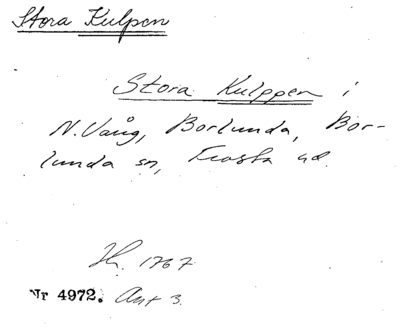 Stora Kulpen
Stora Kulppen i
N. Vång, Borlunda, Bor-
lunda sn, Frosta hd.
1767
Nr 4972. Akt 3.